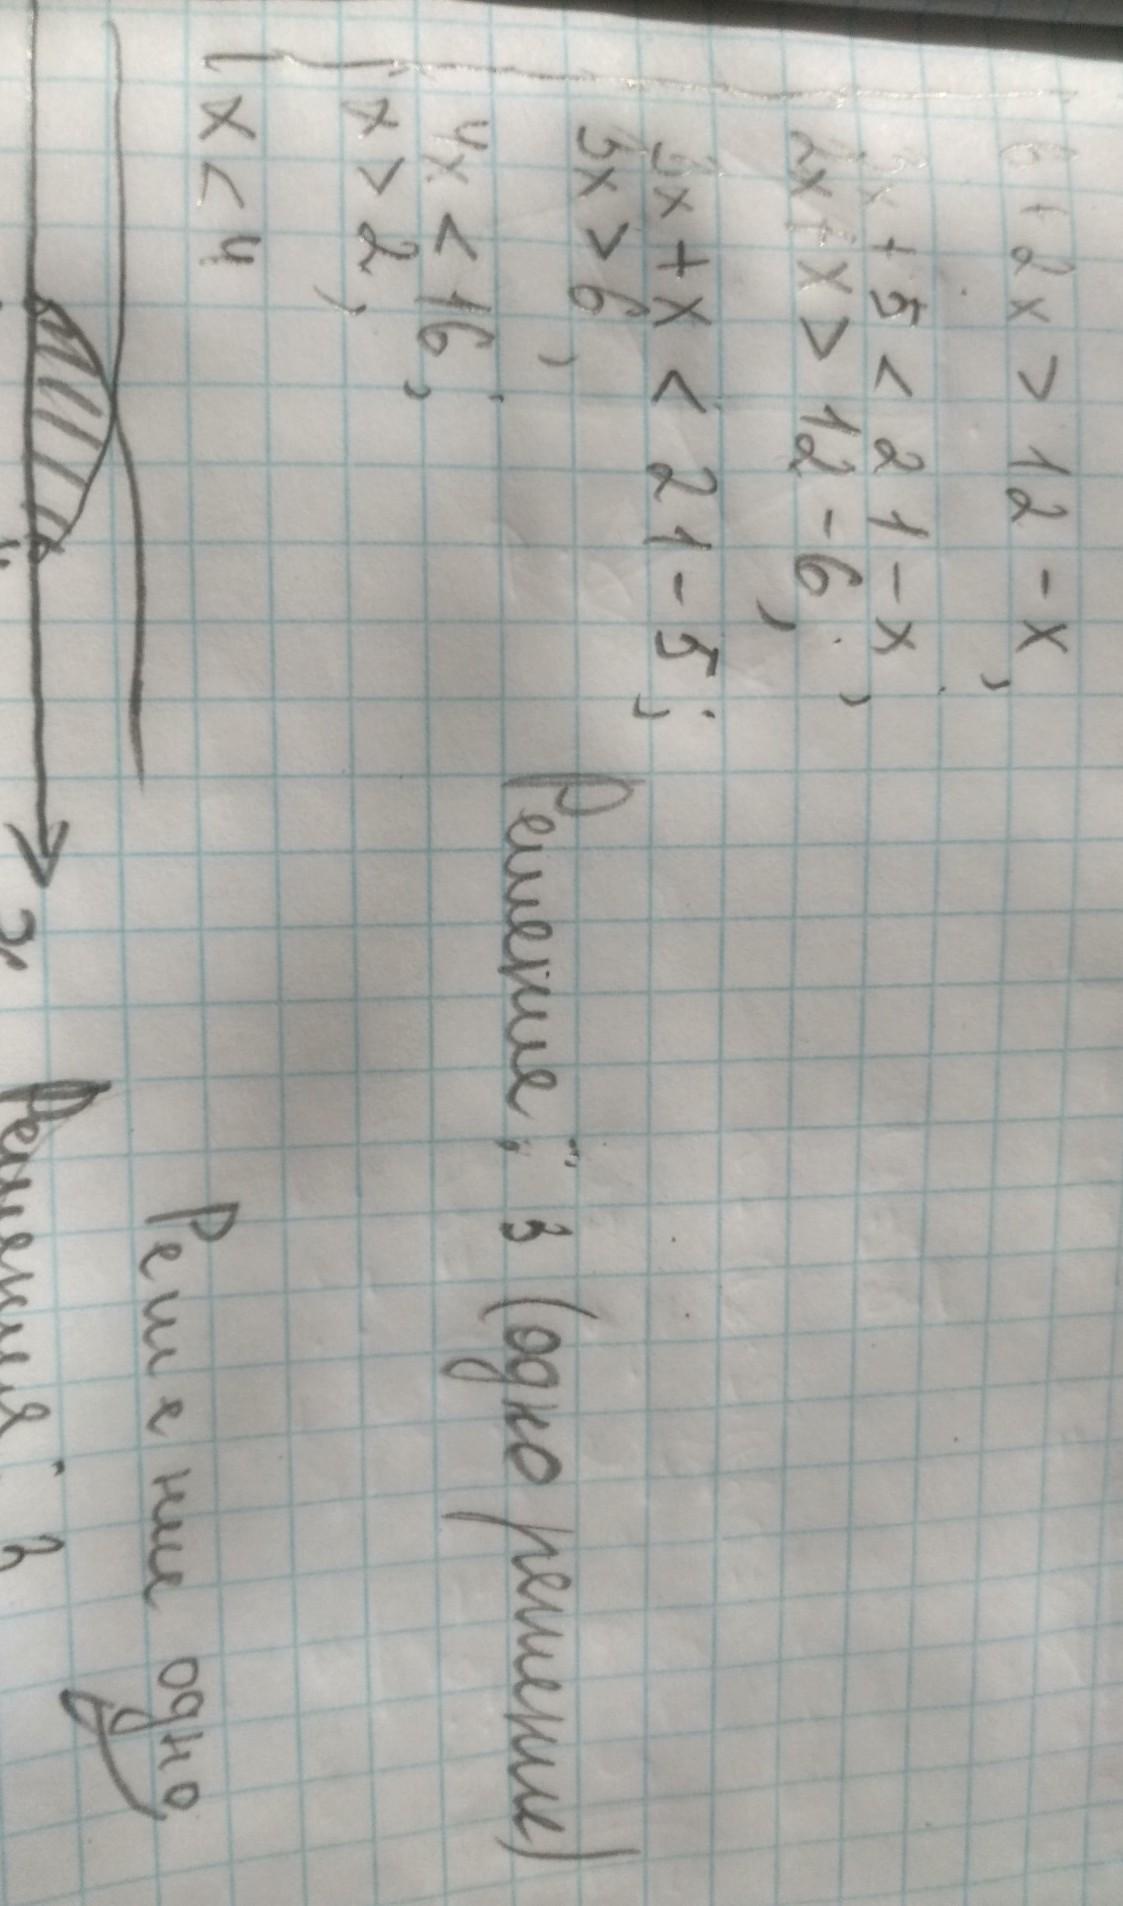 6 + 2x > 12 - x,
3x + 5 < 21 - x,
2x + x > 12 - 6,
3x + x < 21 - 5;
3x > 6,
4x < 16;
x > 2,
x < 4
Решение: 3 (одно решение)
Решение одно
x
Решение: 3